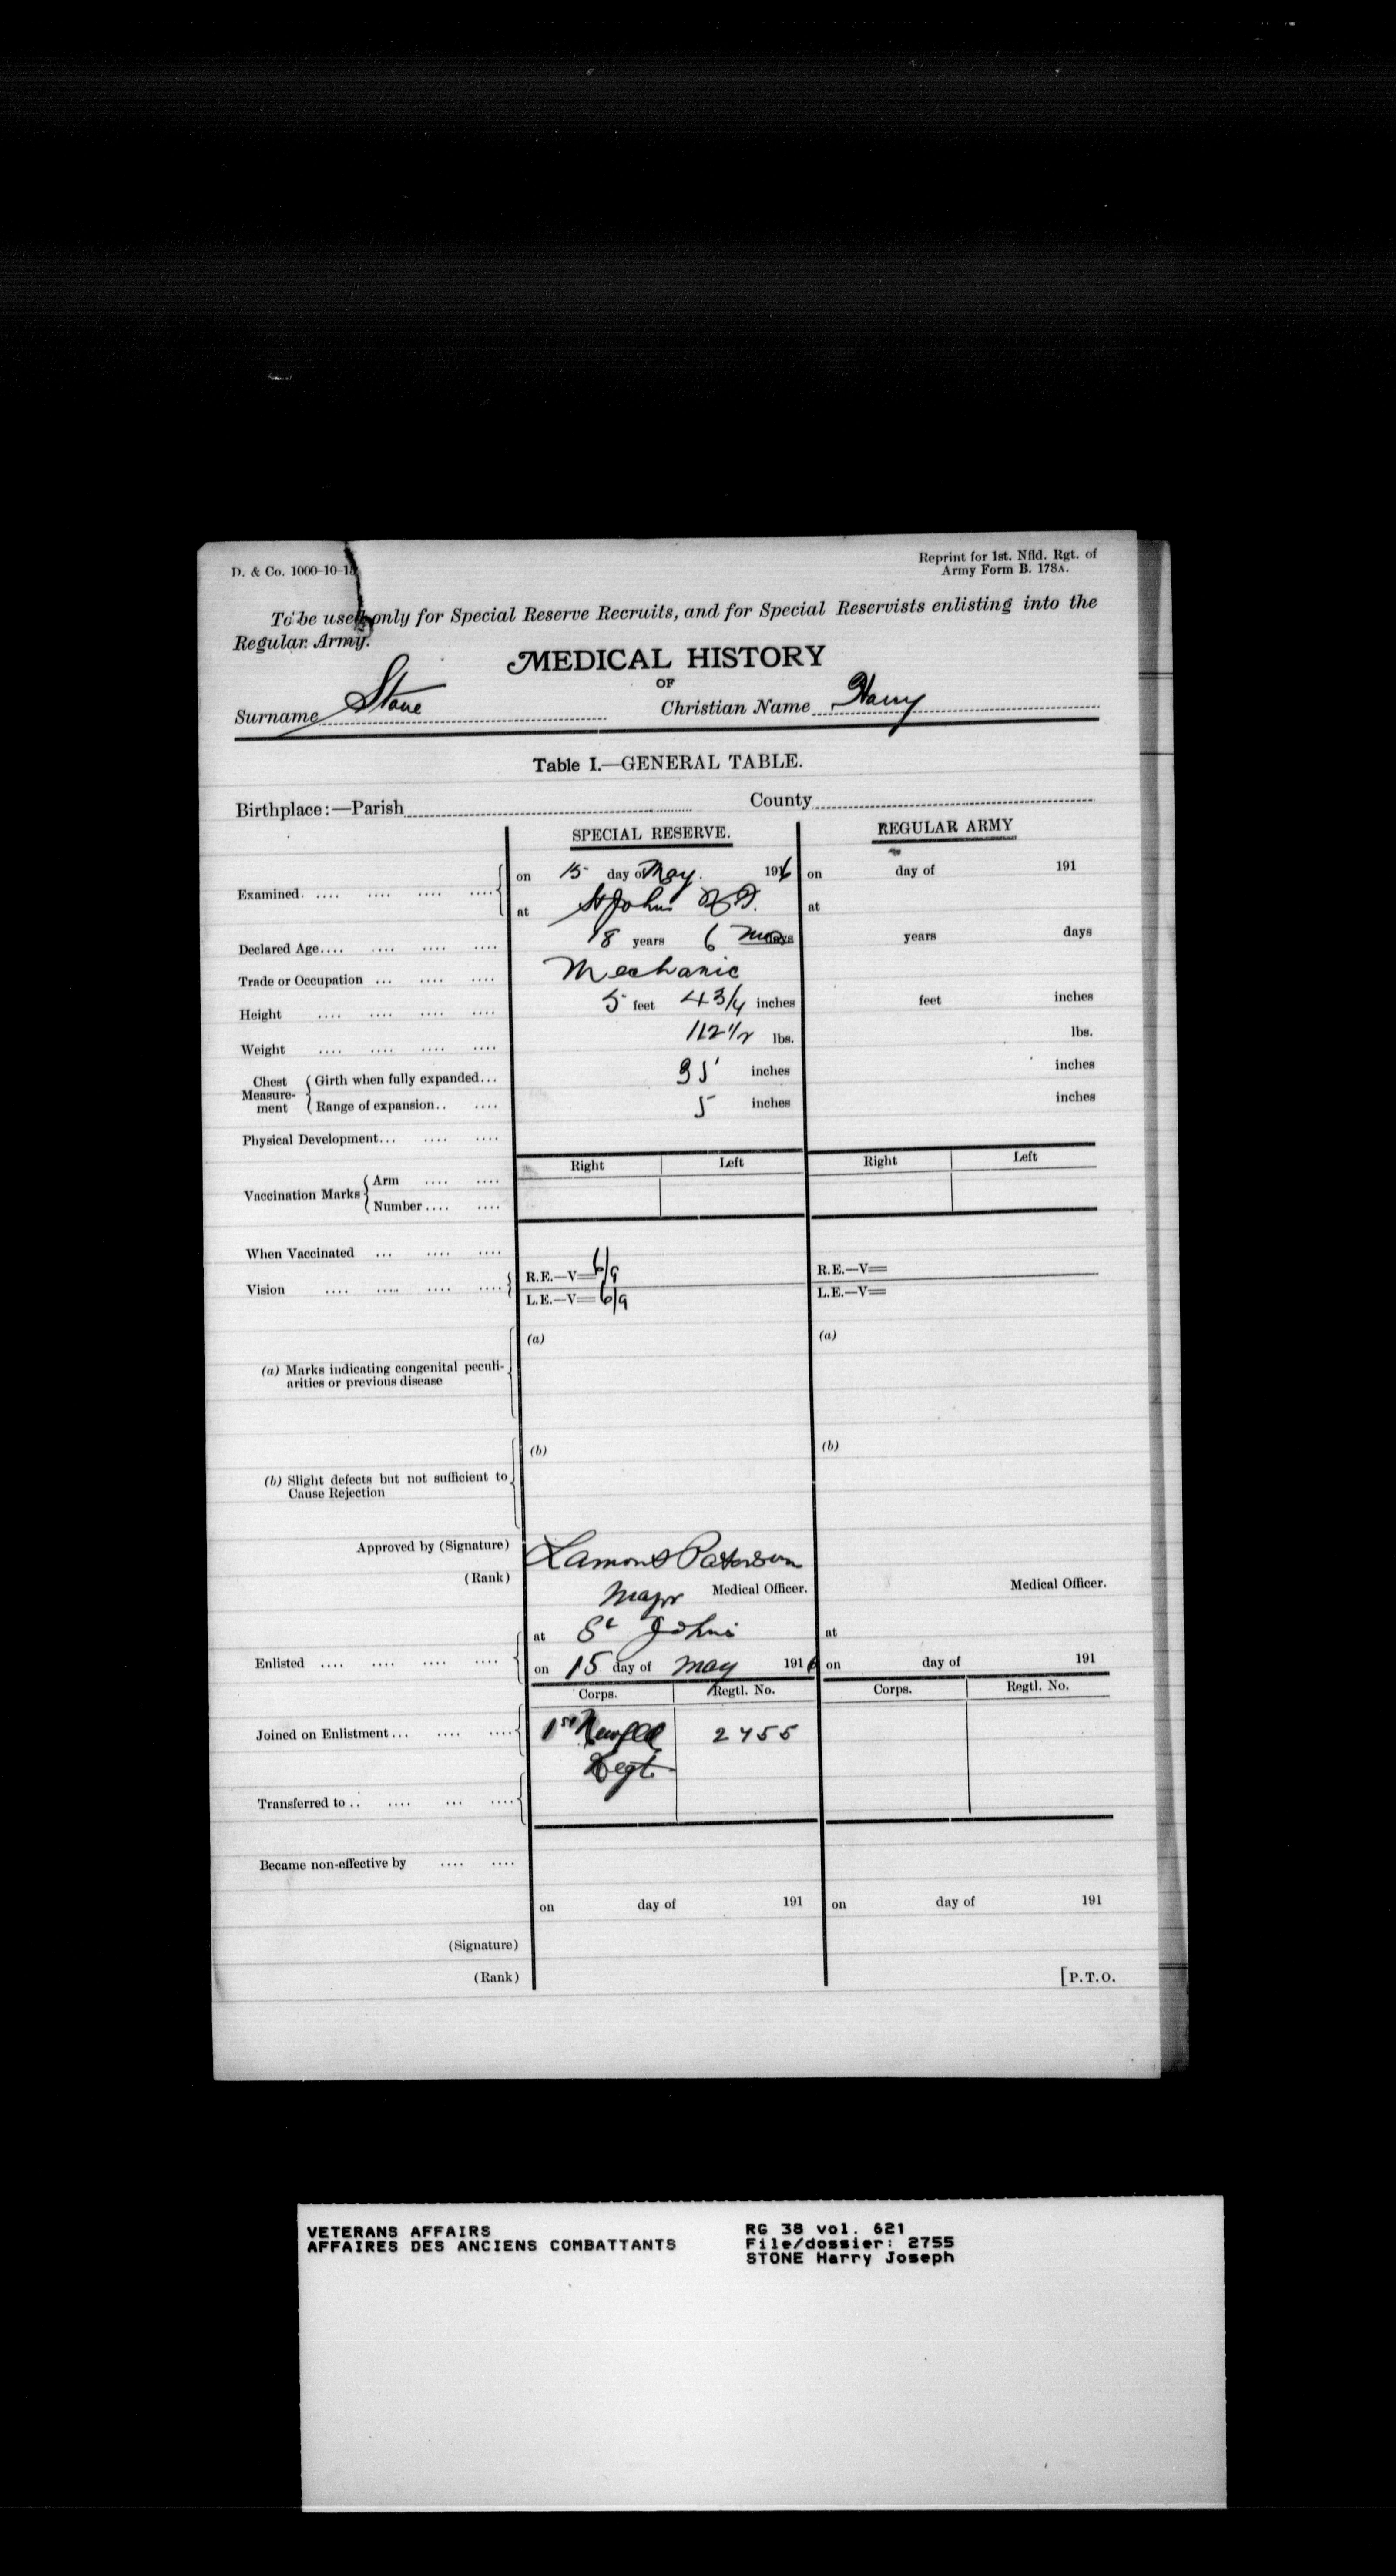 D. & Co. 1000-10-1
Reprint for 1st. Nfld. Rgt. of
Army Form B. 178A.
To be used only for Special Reserve Recruits, and for Special Reservists enlisting into the
Regular Army.
MEDICAL HISTORY
OF
Surname Stone Christian Name Harry
Table I.—GENERAL TABLE.
Birthplace:—Parish County
SPECIAL RESERVE. REGULAR ARMY
Examined on 15 day of May. 1916 on day of 191
at St Johns N.F. at
Declared Age 18 years 6 mos days years days
Trade or Occupation Mechanic
Height 5 feet 4 3/4 inches feet inches
Weight 112 1/2 lbs. lbs.
Chest Measurement Girth when fully expanded 35 inches inches
Range of expansion 5 inches inches
Physical Development
Right Left Right Left
Vaccination Marks Arm
Number
When Vaccinated
Vision R.E.—V= 6/9 R.E.—V=
L.E.—V= 6/9 L.E.—V=
(a) (a)
(a) Marks indicating congenital peculi-
arities or previous disease
(b) (b)
(b) Slight defects but not sufficient to
Cause Rejection
Approved by (Signature) Lamont Paterson
(Rank) Major Medical Officer. Medical Officer.
at St Johns at
Enlisted on 15 day of May 1916 on day of 191
Corps. Regtl. No. Corps. Regtl. No.
Joined on Enlistment 1st Newfld 2755
Regt.
Transferred to
Became non-effective by
on day of 191 on day of 191
(Signature)
(Rank) [P.T.O.
VETERANS AFFAIRS RG 38 vol. 621
AFFAIRES DES ANCIENS COMBATTANTS File/dossier: 2755
STONE Harry Joseph